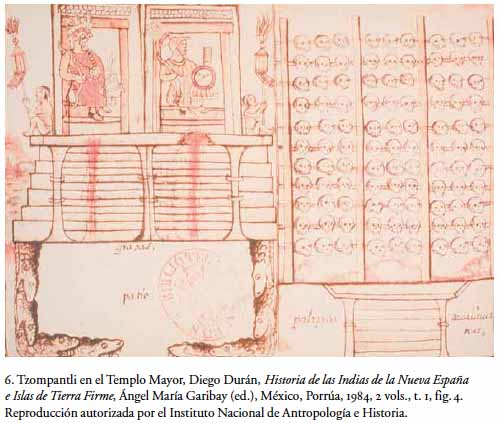 gradas.
patio
6. Tzompantli en el Templo Mayor, Diego Durán, Historia de las Indias de la Nueva España
e Islas de Tierra Firme, Ángel María Garibay (ed.), México, Porrúa, 1984, 2 vols., t. 1, fig. 4.
Reproducción autorizada por el Instituto Nacional de Antropología e Historia.